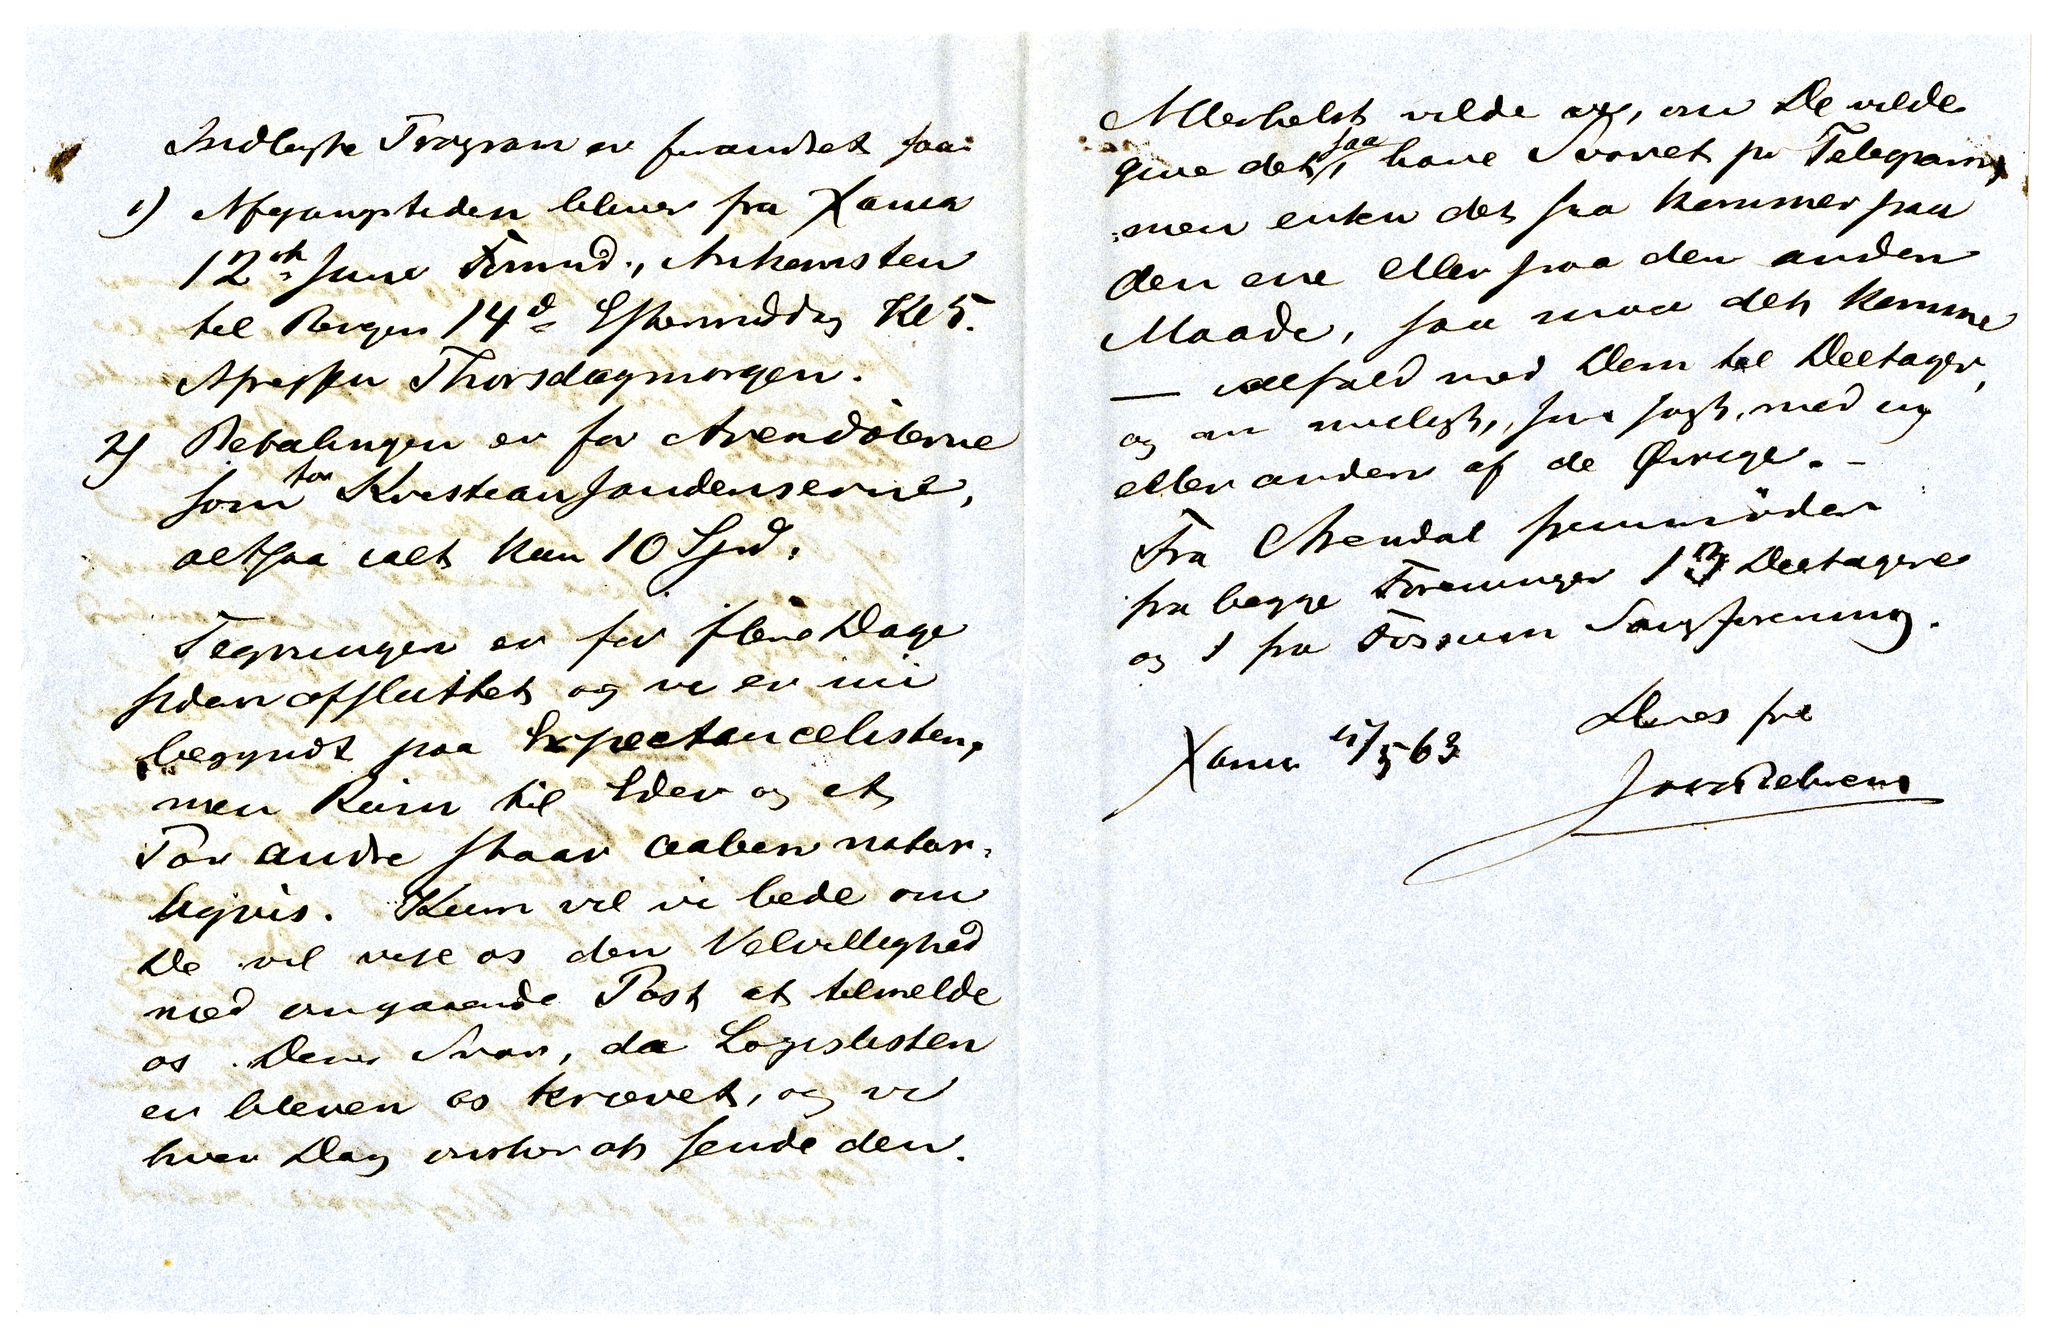 Indlagte Program er forandret saa:
1) Afgangstiden bliver fra Xania
12te Juni Formd., Ankomsten
til Bergen 14d Eftermiddag Kl 5.
Afreisen Thorsdagmorgen.
2) Betalingen er for Arendølerne
som for Kristianssandenserne,
altsaa ialt kun 10 Spd.
Tegningen er for flere Dage
siden afsluttet og vi er nu
begyndt paa Expectancelisten,
men Rum til Eder og et
Par andre staar aaben natur-
ligvis. Kun vil vi bede om
De vil vise os den Velvillighed
med omgaaende Post at tilmelde
os Deres Svar, da Logislisten
er bleven os krævet, og vi
hver Dag ønsker at sende den.
Allerhelst vilde vi, om De vilde
give det saa have Svaret pr Telegram,
men enten det saa kommer paa
den ene eller paa den anden
Maade, saa maa det komme
— ialfald med Dem til Deltager,
og om muligt, som sagt, med en
eller anden af de Øvrige. –
Fra Arendal fremmöder
fra begge Foreninger 13 Deeltagere
og 1 fra Fossum Sangforening.
Deres
Xania /5 63
Behrens